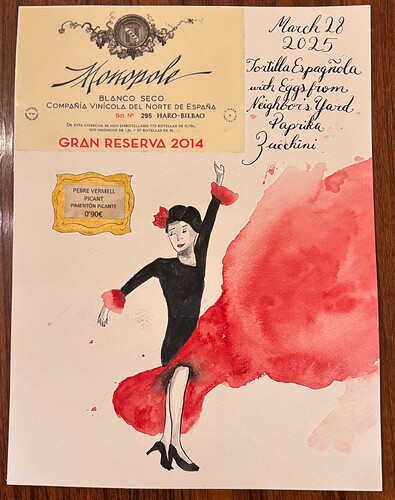 Monopole
BLANCO SECO
COMPAÑÍA VINÍCOLA DEL NORTE DE ESPAÑA
Bot. Nº 295 HARO-BILBAO
DE ESTA COSECHA SE HAN EMBOTELLADO 772 BOTELLAS DE 0,75L,
GRAN RESERVA 2014
March 28
2025
Tortilla Española
with Eggs from
Neighbor's Yard
Paprika
Zucchini
PEBRE VERMELL
PICANT
PIMENTÓN PICANTE
0'90€